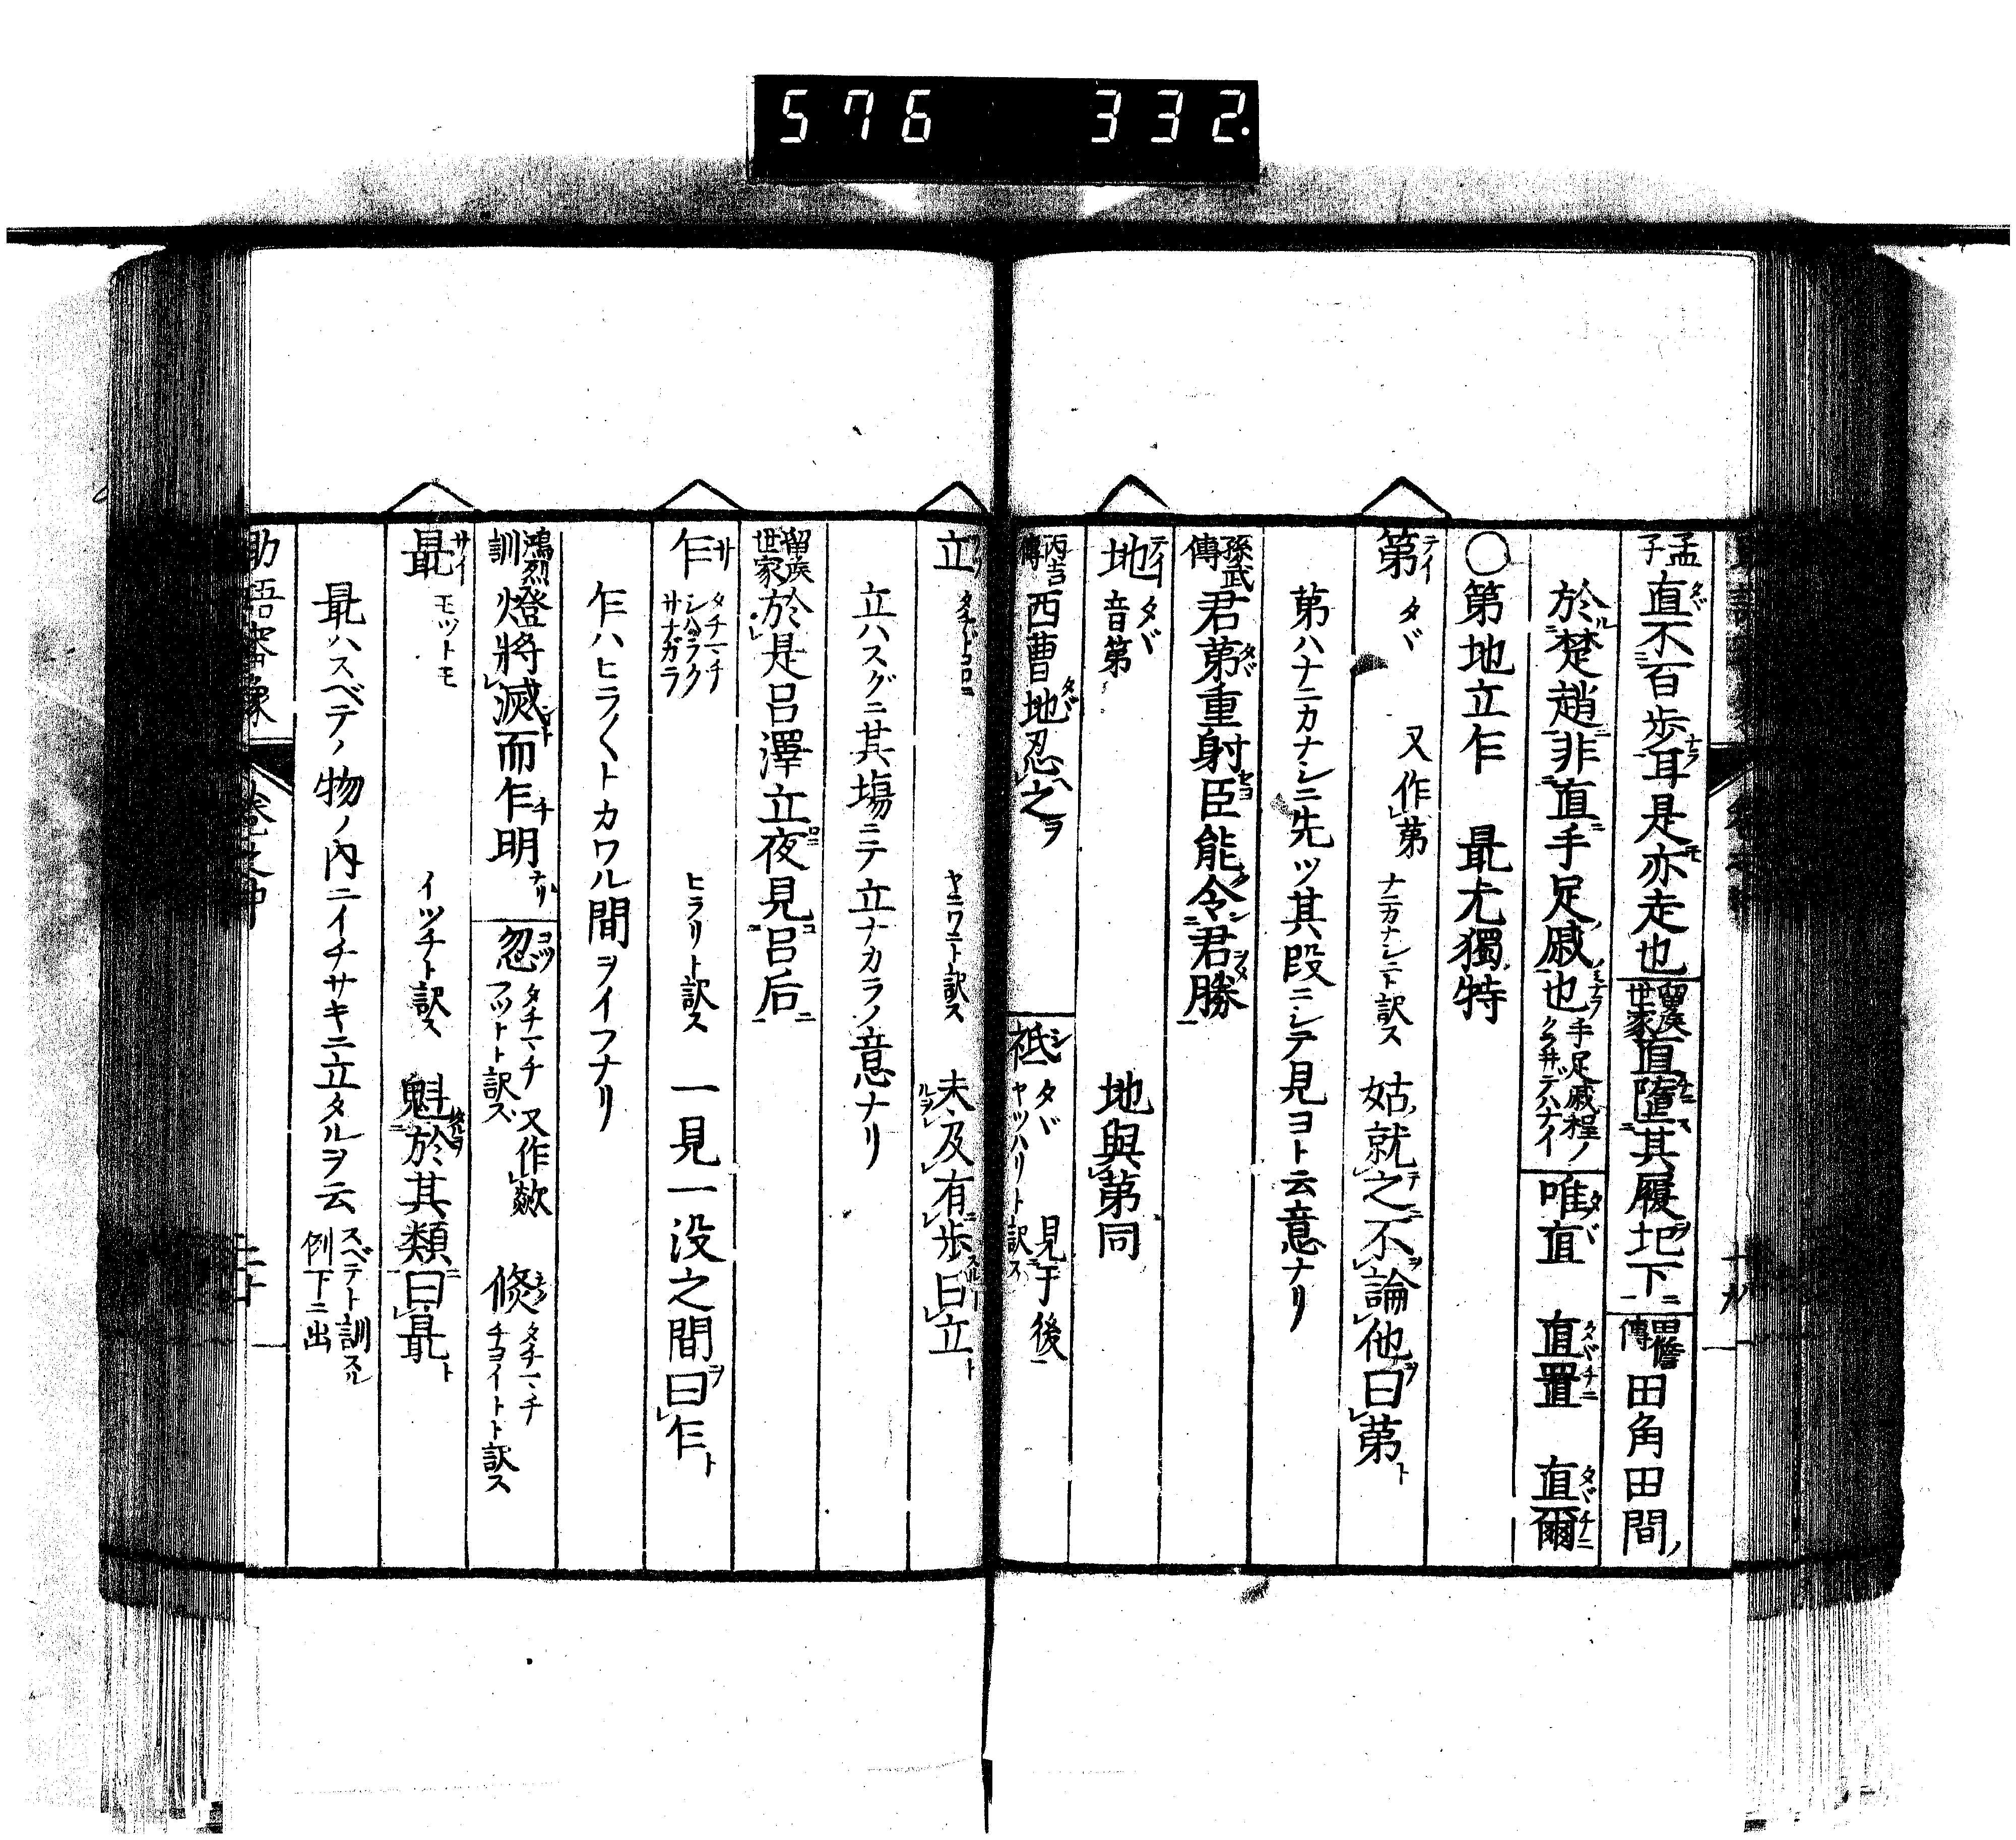 576 332.
孟子 直不百歩耳是亦走也 留矦世家 直墮其履圯下 田儋傳 田角田間
於楚趙非直手足戚也 手足戚程ノクラ井デハナイ 唯直 直置 直爾
〇第地立乍 最尤獨特
第 テイ タヾ 又作苐 ナニカナシニト訳ス 姑就之不論他曰苐
苐ハナニカナシニ先ツ其段ニシテ見ヨト云意ナリ
孫武傳 君苐重射臣能令君勝
地 テイ タヾ 音第 地與第同
丙吉傳 西曹地忍之 祗 シ タヾ ヤツハリト訳ス 見于後
立 タチドコロニ ヤニワニト訳ス 未及有歩曰立
立ハスグニ其塲ニテ立ナカラノ意ナリ
留矦世家 於是呂澤立夜見呂后
乍 サ タチマチ シハラク サナガラ ヒラリト訳ス 一見一没之間曰乍
乍ハヒラ〱トカワル間ヲイフナリ
鴻烈訓 燈將滅而乍明 忽 コツ タチマチ フツト訳ス 又作歘 倏 タチマチ チヨイト訳ス
最 サイ モツトモ イツチト訳ス 魁於其類曰最
最ハスベテノ物ノ内ニイチサキニ立タルヲ云 スベテト訓スル例下ニ出
助語審象